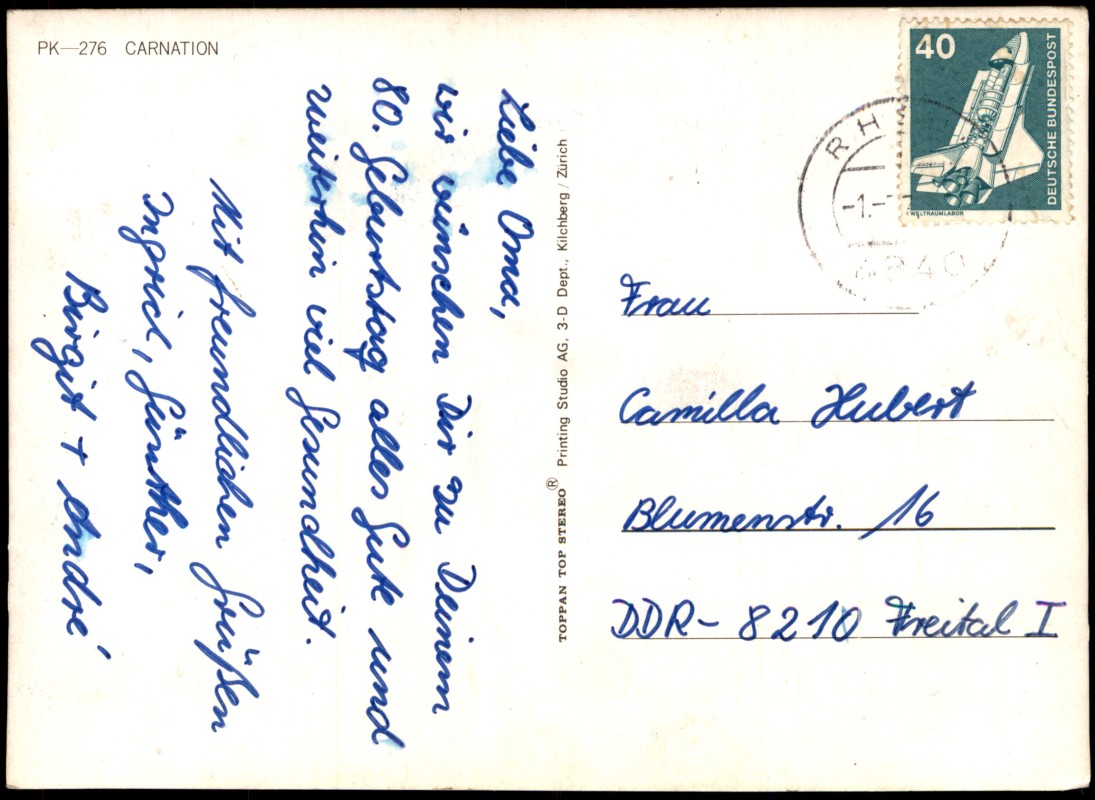 PK—276 CARNATION
Liebe Oma,
wir wünschen Dir zu Deinem
80. Geburtstag alles Gute und
weiterhin viel Gesundheit.
Mit freundlichen Grüßen
Ingrid, Günther,
Birgit + André
TOPPAN TOP STEREO® Printing Studio AG, 3-D Dept., Kilchberg / Zürich
40
DEUTSCHE BUNDESPOST
WELTRAUMLABOR
RH
-1.-
4840
Frau
Camilla Hubert
Blumenstr. 16
DDR- 8210 Freital I